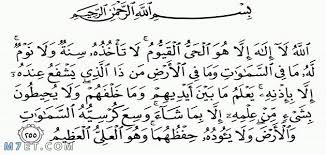 بِسْمِ اللَّهِ الرَّحْمَٰنِ الرَّحِيمِ
اللَّهُ لَا إِلَٰهَ إِلَّا هُوَ الْحَيُّ الْقَيُّومُ ۚ لَا تَأْخُذُهُ سِنَةٌ وَلَا نَوْمٌ ۚ
لَّهُ مَا فِي السَّمَاوَاتِ وَمَا فِي الْأَرْضِ ۗ مَن ذَا الَّذِي يَشْفَعُ عِندَهُ
إِلَّا بِإِذْنِهِ ۚ يَعْلَمُ مَا بَيْنَ أَيْدِيهِمْ وَمَا خَلْفَهُمْ ۖ وَلَا يُحِيطُونَ
بِشَيْءٍ مِّنْ عِلْمِهِ إِلَّا بِمَا شَاءَ ۚ وَسِعَ كُرْسِيُّهُ السَّمَاوَاتِ
وَالْأَرْضَ ۖ وَلَا يَئُودُهُ حِفْظُهُمَا ۚ وَهُوَ الْعَلِيُّ الْعَظِيمُ ٢٥٥
M7ET.COM